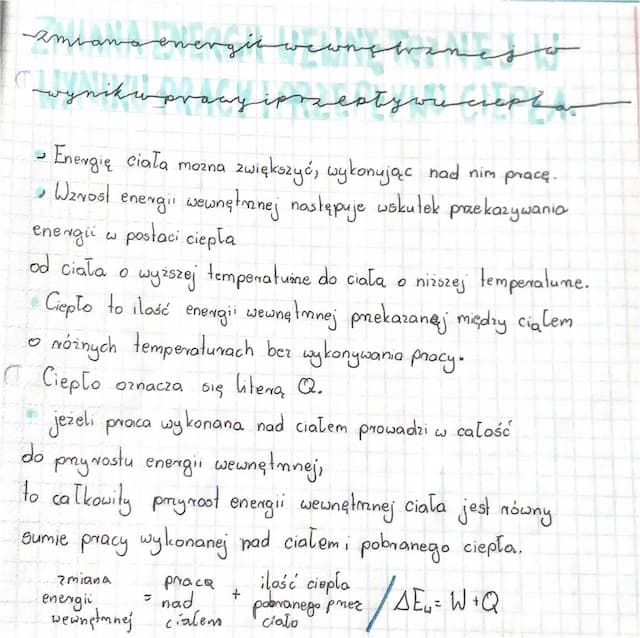 zmiana energii wewnętrznej w
wyniku pracy i przepływu ciepła.
Energię ciała można zwiększyć, wykonując nad nim pracę.
Wzrost energii wewnętrznej następuje wskutek przekazywania
energii w postaci ciepła
od ciała o wyższej temperaturze do ciała o niższej temperaturze.
Ciepło to ilość energii wewnętrznej przekazanej między ciałem
o różnych temperaturach bez wykonywania pracy.
Ciepło oznacza się literą Q.
jeżeli praca wykonana nad ciałem prowadzi w całość
do przyrostu energii wewnętrznej,
to całkowity przyrost energii wewnętrznej ciała jest równy
sumie pracy wykonanej nad ciałem i pobranego ciepła.
zmiana energii wewnętrznej = pracą nad ciałem + ilość ciepła pobranego przez ciało / ΔEw = W + Q